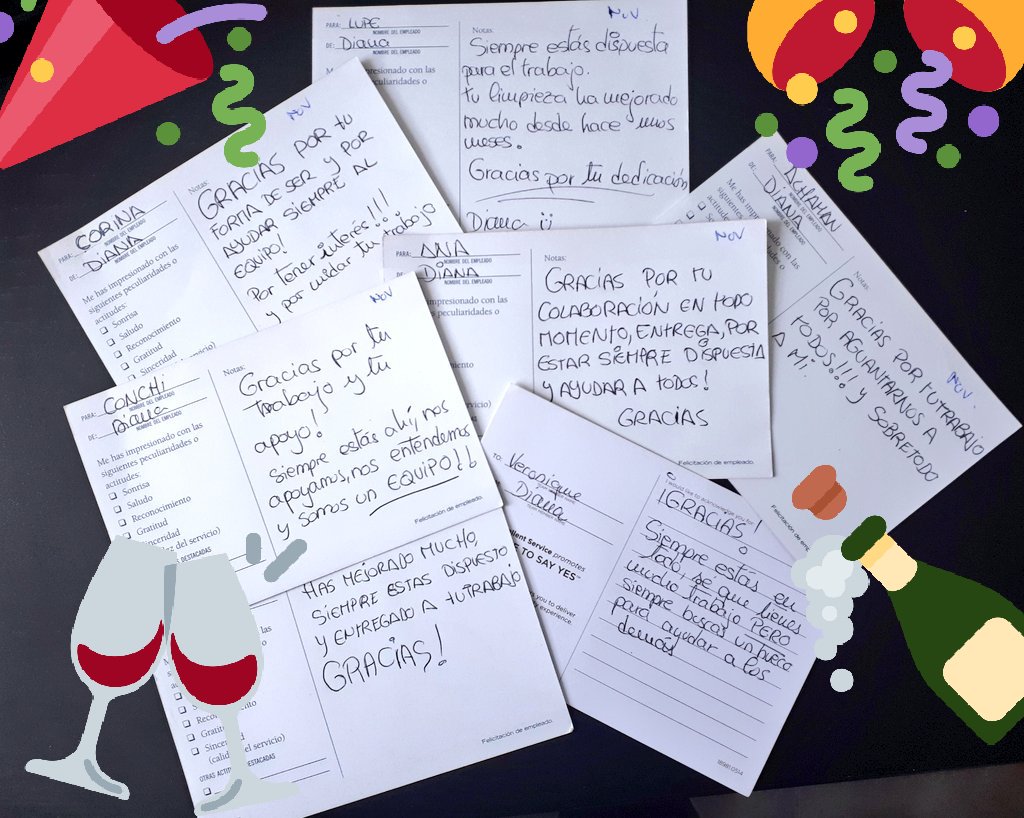 NOV
PARA: LUPE
NOMBRE DEL EMPLEADO
DE: Diana
NOMBRE DEL EMPLEADO
Me has impresionado con las
siguientes peculiaridades o
Notas:
Siempre estás dispuesta
para el trabajo.
tu limpieza ha mejorado
mucho desde hace unos
meses.
Gracias por tu dedicación
Diana
NOV
CORINA
NOMBRE DEL EMPLEADO
DE: DIANA
NOMBRE DEL EMPLEADO
Me has impresionado con las
siguientes peculiaridades o
actitudes:
Sonrisa
Saludo
Reconocimiento
Gratitud
Sinceridad
Notas:
GRACIAS POR TU
FORMA DE SER Y POR
AYUDAR SIEMPRE AL
EQUIPO!
Por tener interés!!!
y por cuidar tu trabajo
PARA:
NOMBRE DEL EMPLEADO
DE: DIANA
NOMBRE DEL EMPLEADO
Me has impresionado con las
Notas:
NOV
GRACIAS POR TU TRABAJO
POR AGUANTARNOS A
TODOS!!! Y SOBRETODO
A MI.
Felicitación de
NOV
PARA: ANIA
NOMBRE DEL EMPLEADO
DE: DIANA
NOMBRE DEL EMPLEADO
impresionado con las
peculiaridades o
Notas:
GRACIAS POR TU
COLABORACIÓN EN TODO
MOMENTO, ENTREGA, POR
ESTAR SIEMPRE DISPUESTA
Y AYUDAR A TODOS!
GRACIAS
Felicitación de empleado.
NOV
PARA: CONCHI
NOMBRE DEL EMPLEADO
DE: Diana
NOMBRE DEL EMPLEADO
Me has impresionado con las
siguientes peculiaridades o
actitudes:
Sonrisa
Saludo
Reconocimiento
Gratitud
Sinceridad
del servicio)
DESTACADAS
Notas:
Gracias por tu
trabajo y tu
apoyo!
Siempre estás ahí, nos
apoyamos, nos entendemos
y somos un EQUIPO!!
Felicitación de empleado.
TO: Veronique
Diana
Service promotes
TO SAY YES"
you to deliver
experience.
I would like to acknowledge you for
¡GRACIAS!
Siempre estás en
todo, sé que tienes
mucho trabajo PERO
siempre buscas un hueco
para ayudar a los
demás
18981 0514
HAS MEJORADO MUCHO,
SIEMPRE ESTAS DISPUESTO
Y ENTREGADO A TU TRABAJO
GRACIAS!
(calidad del servicio)
OTRAS ACTITUDES DESTACADAS
Felicitación de empleado.